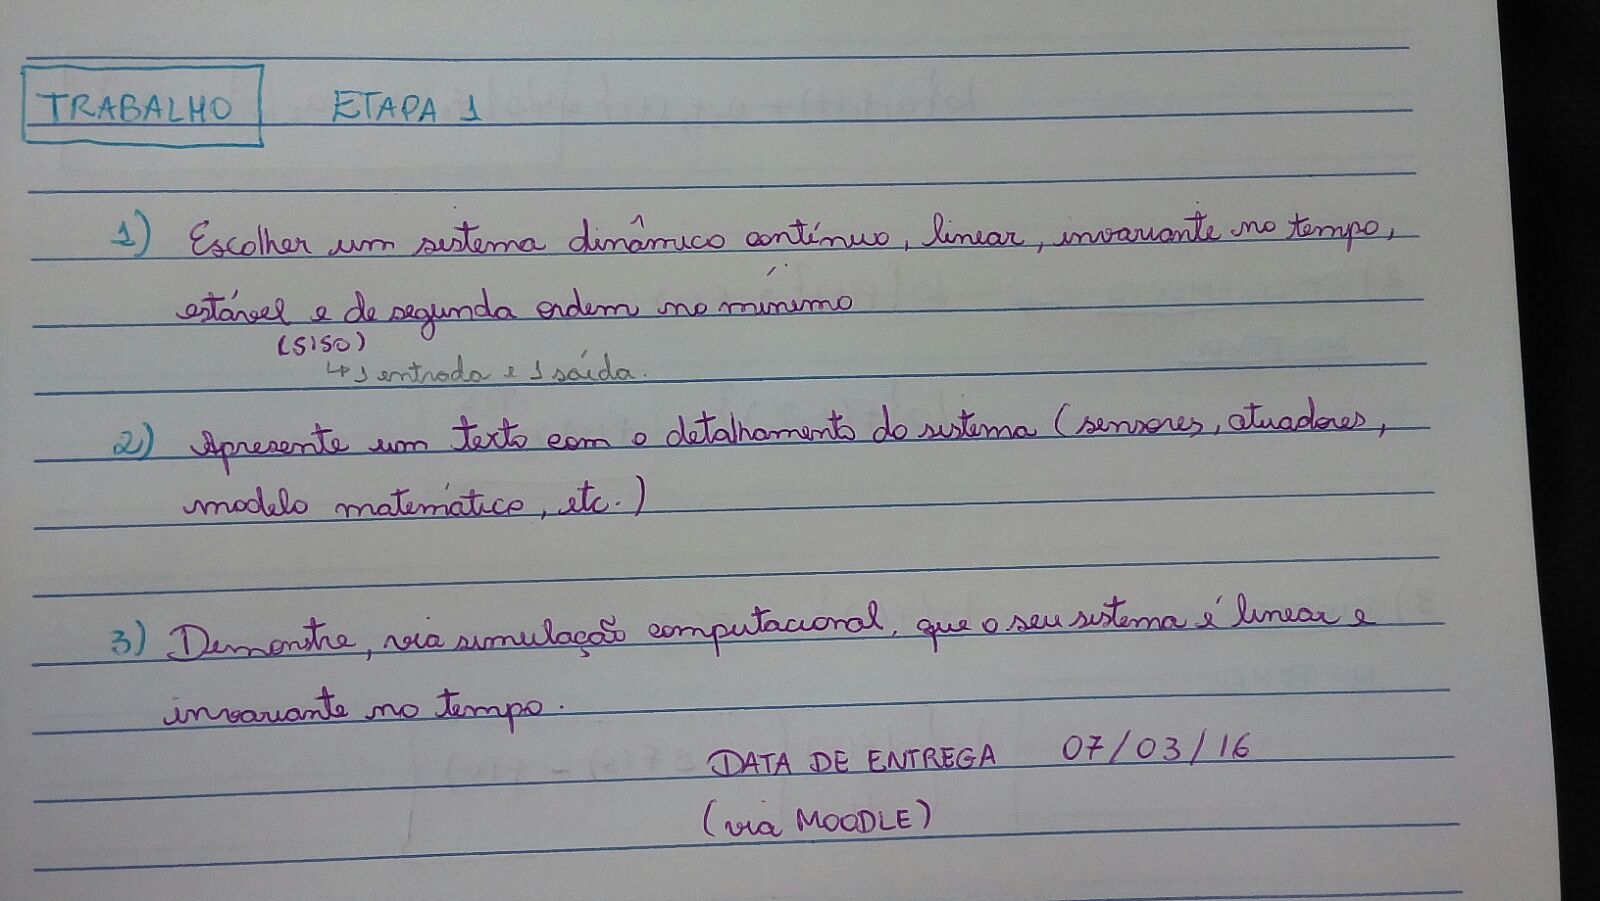 TRABALHO ETAPA 1
1) Escolher um sistema dinâmico contínuo, linear, invariante no tempo,
estável e de segunda ordem no mínimo
(SISO)
↳ 1 entrada e 1 saída.
2) Apresente um texto com o detalhamento do sistema (sensores, atuadores,
modelo matemático, etc.)
3) Demonstre, via simulação computacional, que o seu sistema é linear e
invariante no tempo.
DATA DE ENTREGA 07/03/16
(via MOODLE)